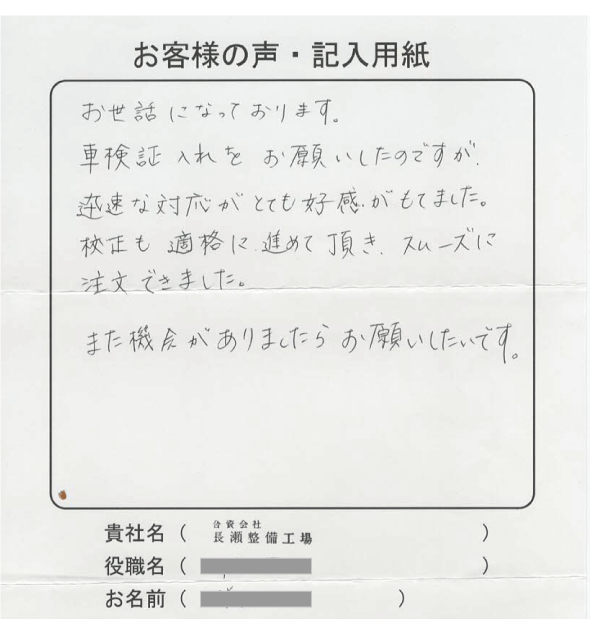 お客様の声・記入用紙
お世話になっております。
車検証入れを お願いしたのですが、
迅速な対応がとても好感がもてました。
校正も 適格に進めて頂き、スムーズに
注文できました。
また機会がありましたら お願いしたいです。
貴社名 ( 合資会社
長瀬整備工場 )
役職名 ( )
お名前 ( )